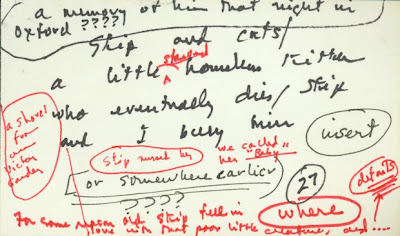 a memory of him that night in
Oxford ????
Skip and cats/
a little starved homeless kitten
who eventually dies/ Skip
and I bury him
insert
a shovel
for
our
Victory
Garden
Skip nursed her
we called
her "Baby"
or somewhere earlier
????
27
details
where
For some reason old Skip fell in
love with that poor little creature, and ....